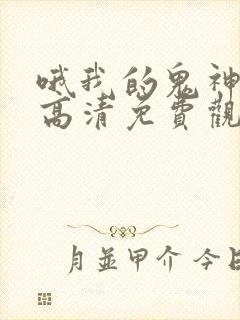 哦我的鬼神
高清免費觀
月並甲介 今日